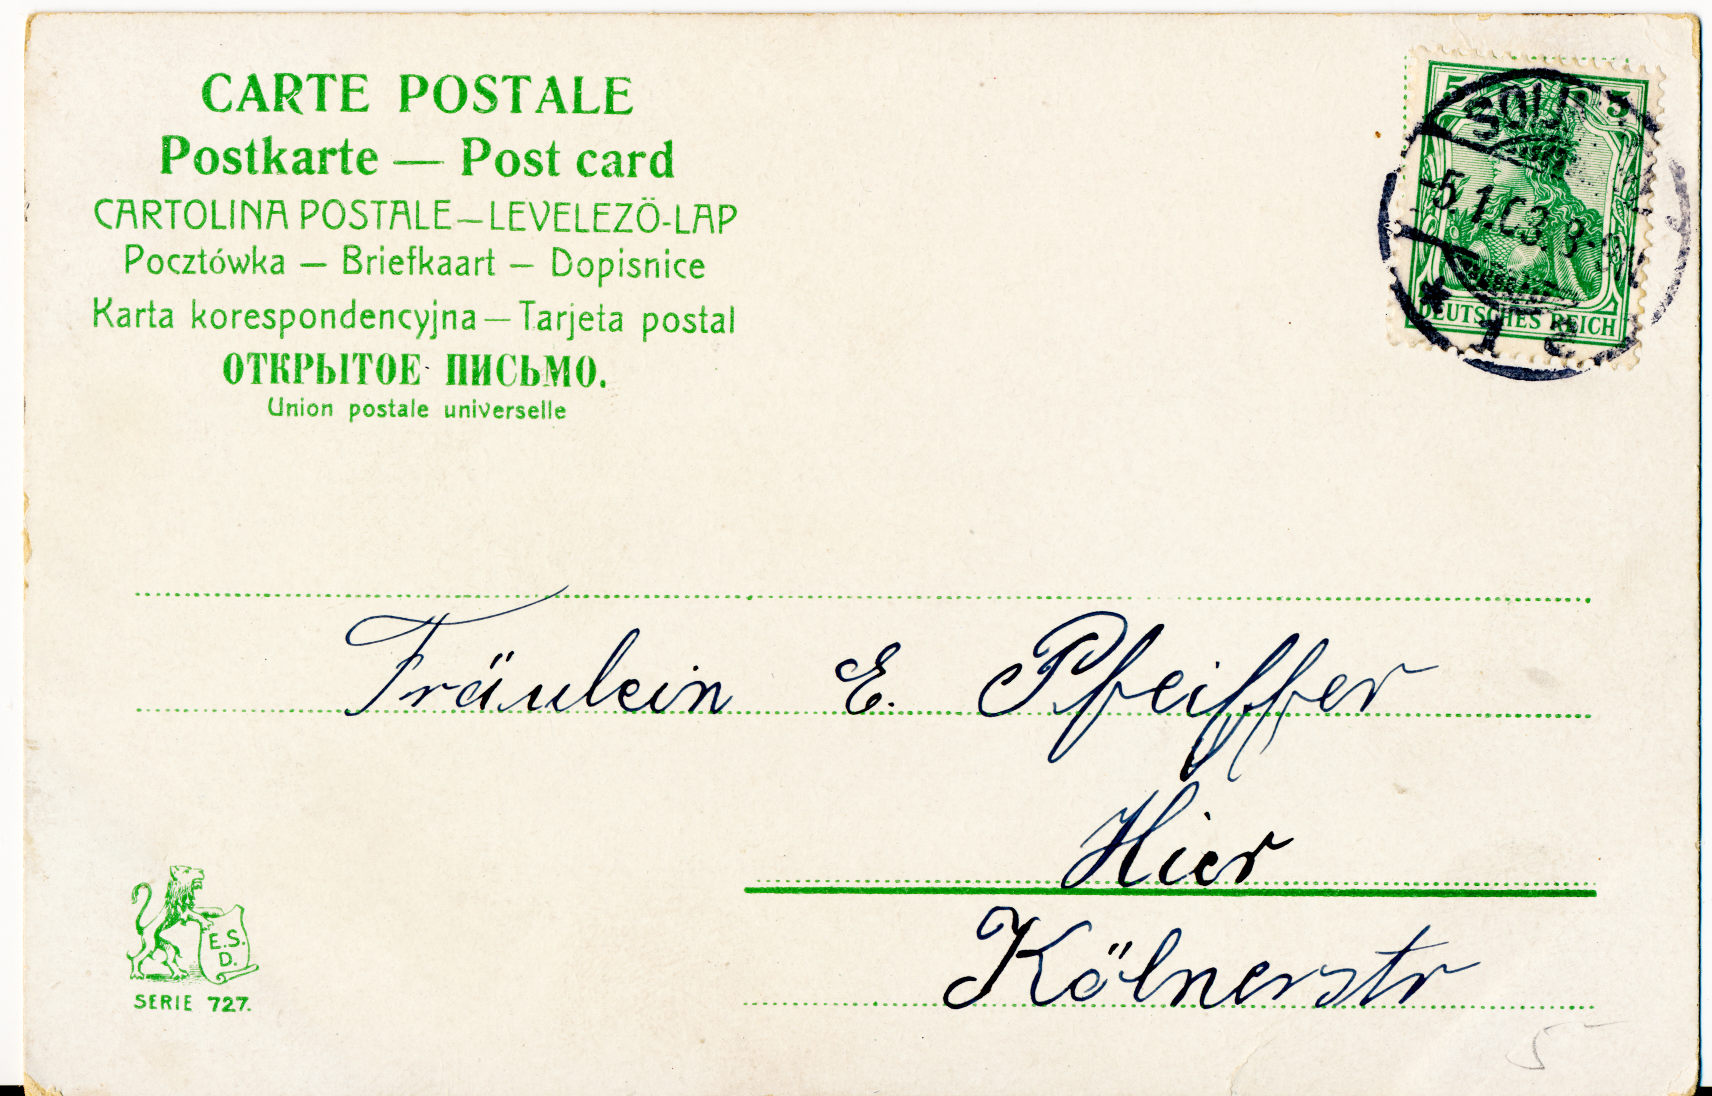 CARTE POSTALE
Postkarte — Post card
CARTOLINA POSTALE — LEVELEZÖ-LAP
Pocztówka — Briefkaart — Dopisnice
Karta korespondencyjna — Tarjeta postal
ОТКРЫТОЕ ПИСЬМО.
Union postale universelle
5 5
-5.1.03. 8-9V
* 1 e
DEUTSCHES REICH
Fräulein E. Pfeiffer
Hier
Kölnerstr
E.S.
D.
SERIE 727.
5